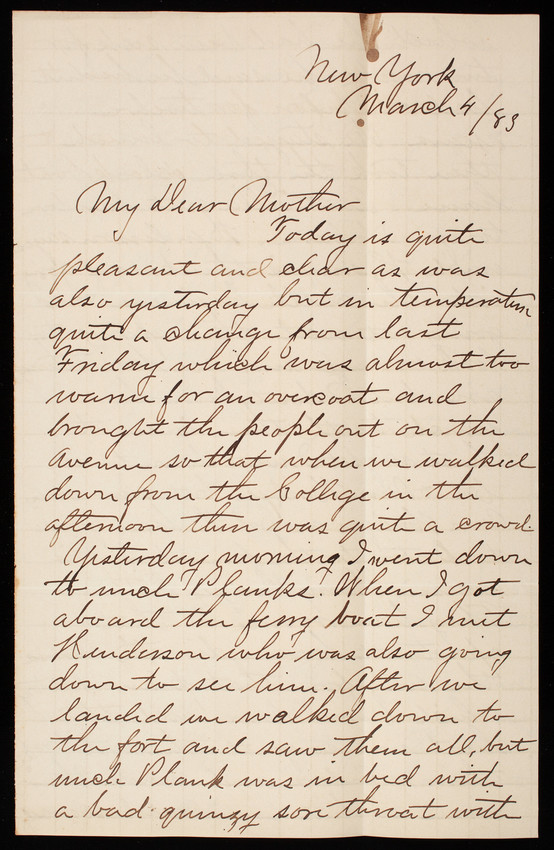 New York
March 4/83
My Dear Mother
Today is quite
pleasant and clear as was
also yesterday but in temperature
quite a change from last
Friday which was almost too
warm for an overcoat and
brought the people out on the
Avenue so that when we walked
down from the College in the
afternoon there was quite a crowd.
Yesterday morning I went down
to uncle Planks. When I got
aboard the ferry boat I met
Henderson who was also going
down to see him. After we
landed we walked down to
the fort and saw them all, but
uncle Plank was in bed with
a bad quinzy sore throat with